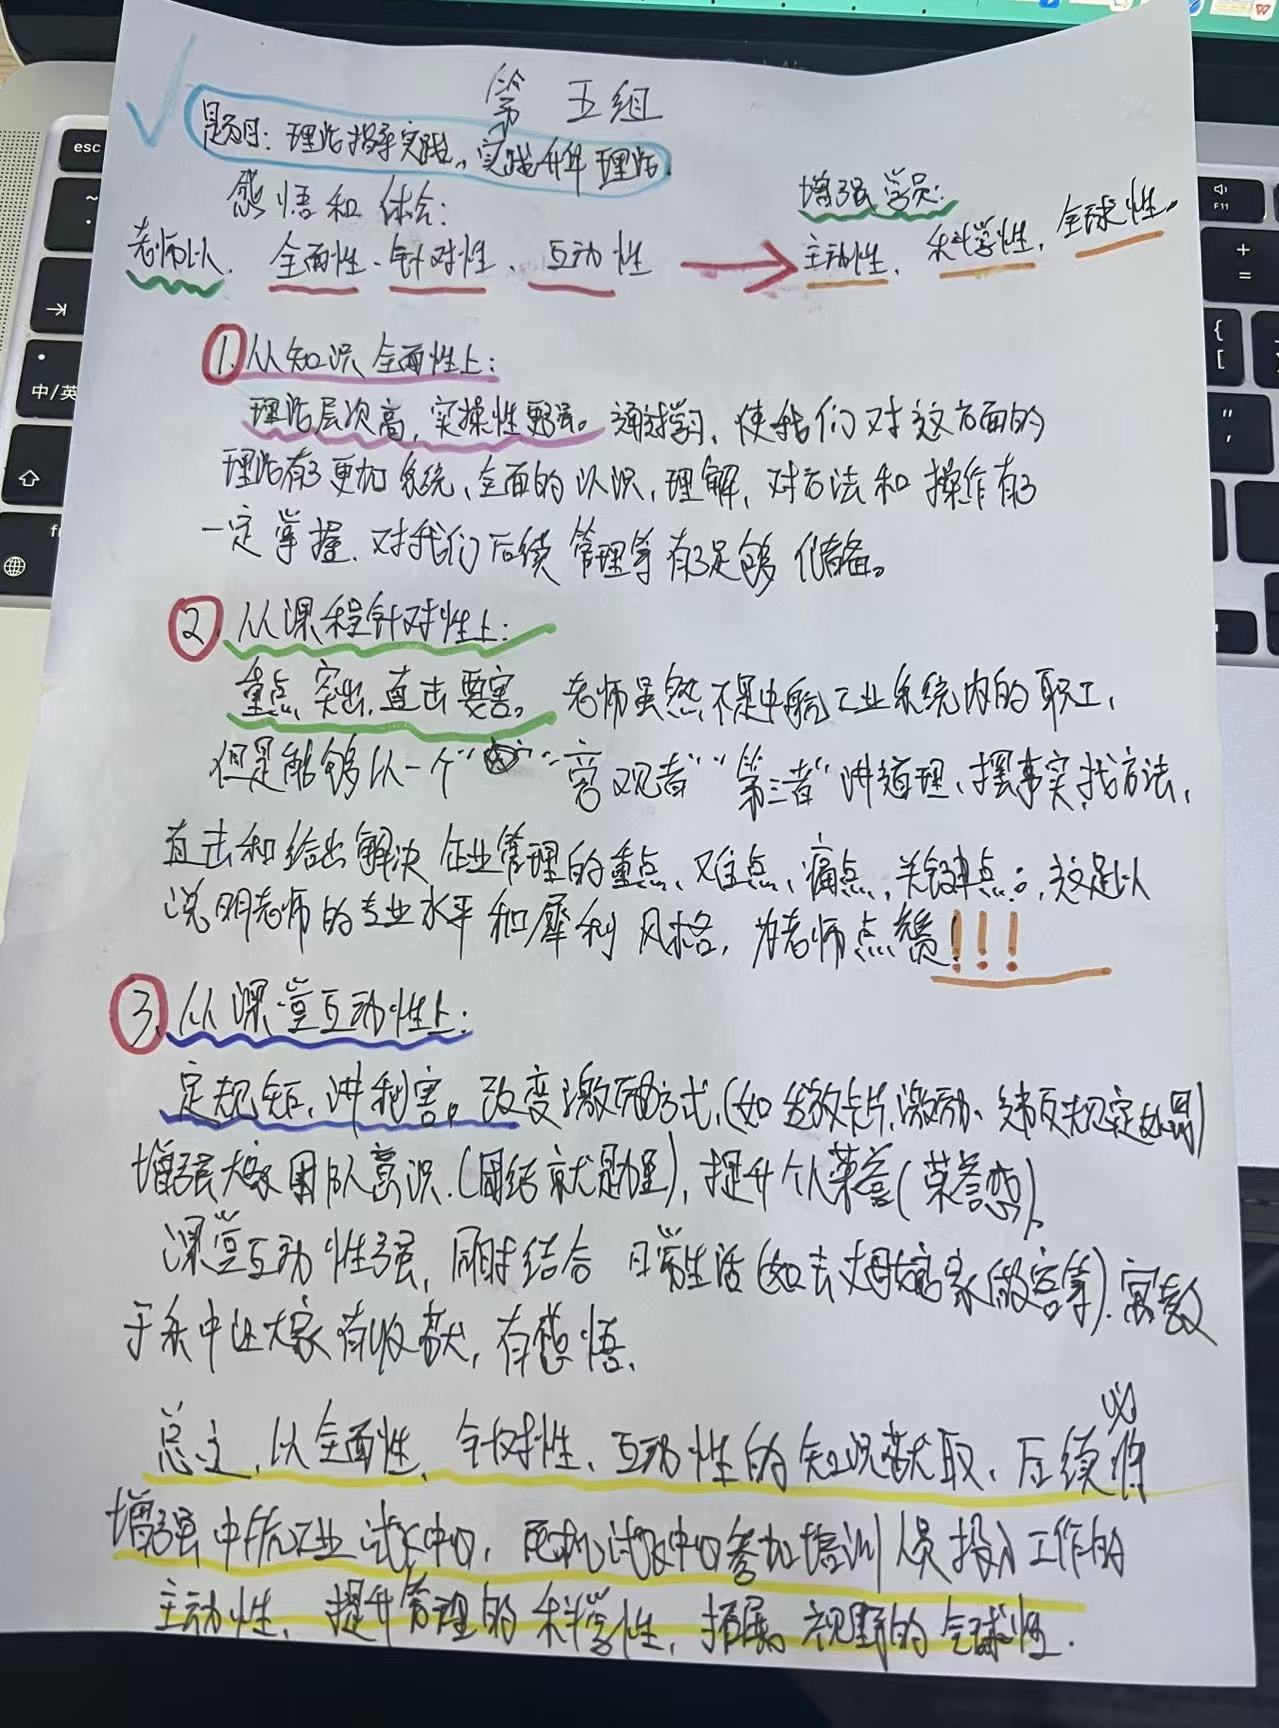 第五组
题目：理论指导实践，实践升华理论
感悟和体会：
增强学员：
老师以 全面性、针对性、互动性 主动性、科学性、全球性。
1. 从知识全面性上：
理论层次高，实操性更强。通过学习，使我们对这方面的
理论有了更加系统、全面的认识，理解，对方法和操作有了
一定掌握，对我们后续管理等有了足够储备。
2. 从课程针对性上：
重点突出，直击要害。老师虽然不是中航工业系统内的职工，
但是能够以一个“旁观者”“第三者”讲道理、摆事实、找方法，
直击和给出解决企业管理的重点、难点、痛点、关键点，这足以
说明老师的专业水平和犀利风格，为老师点赞!!!
3. 从课堂互动性上：
定规矩，讲利害。改变激励方式，(如发放卡片激励、违反规定处罚)
增强大家团队意识，(团结就是力量)，提升个人荣誉(荣誉感)。
课堂互动性强，同时结合日常生活(如去丈母娘家做客等)，寓教
于乐中让大家有收获，有感悟。
总之，以全面性、针对性、互动性的知识获取，后续必将
增强中航工业试飞中心，参加培训人员投入工作的
主动性，提升管理的科学性，拓展视野的全球性.
esc
中/英
F11